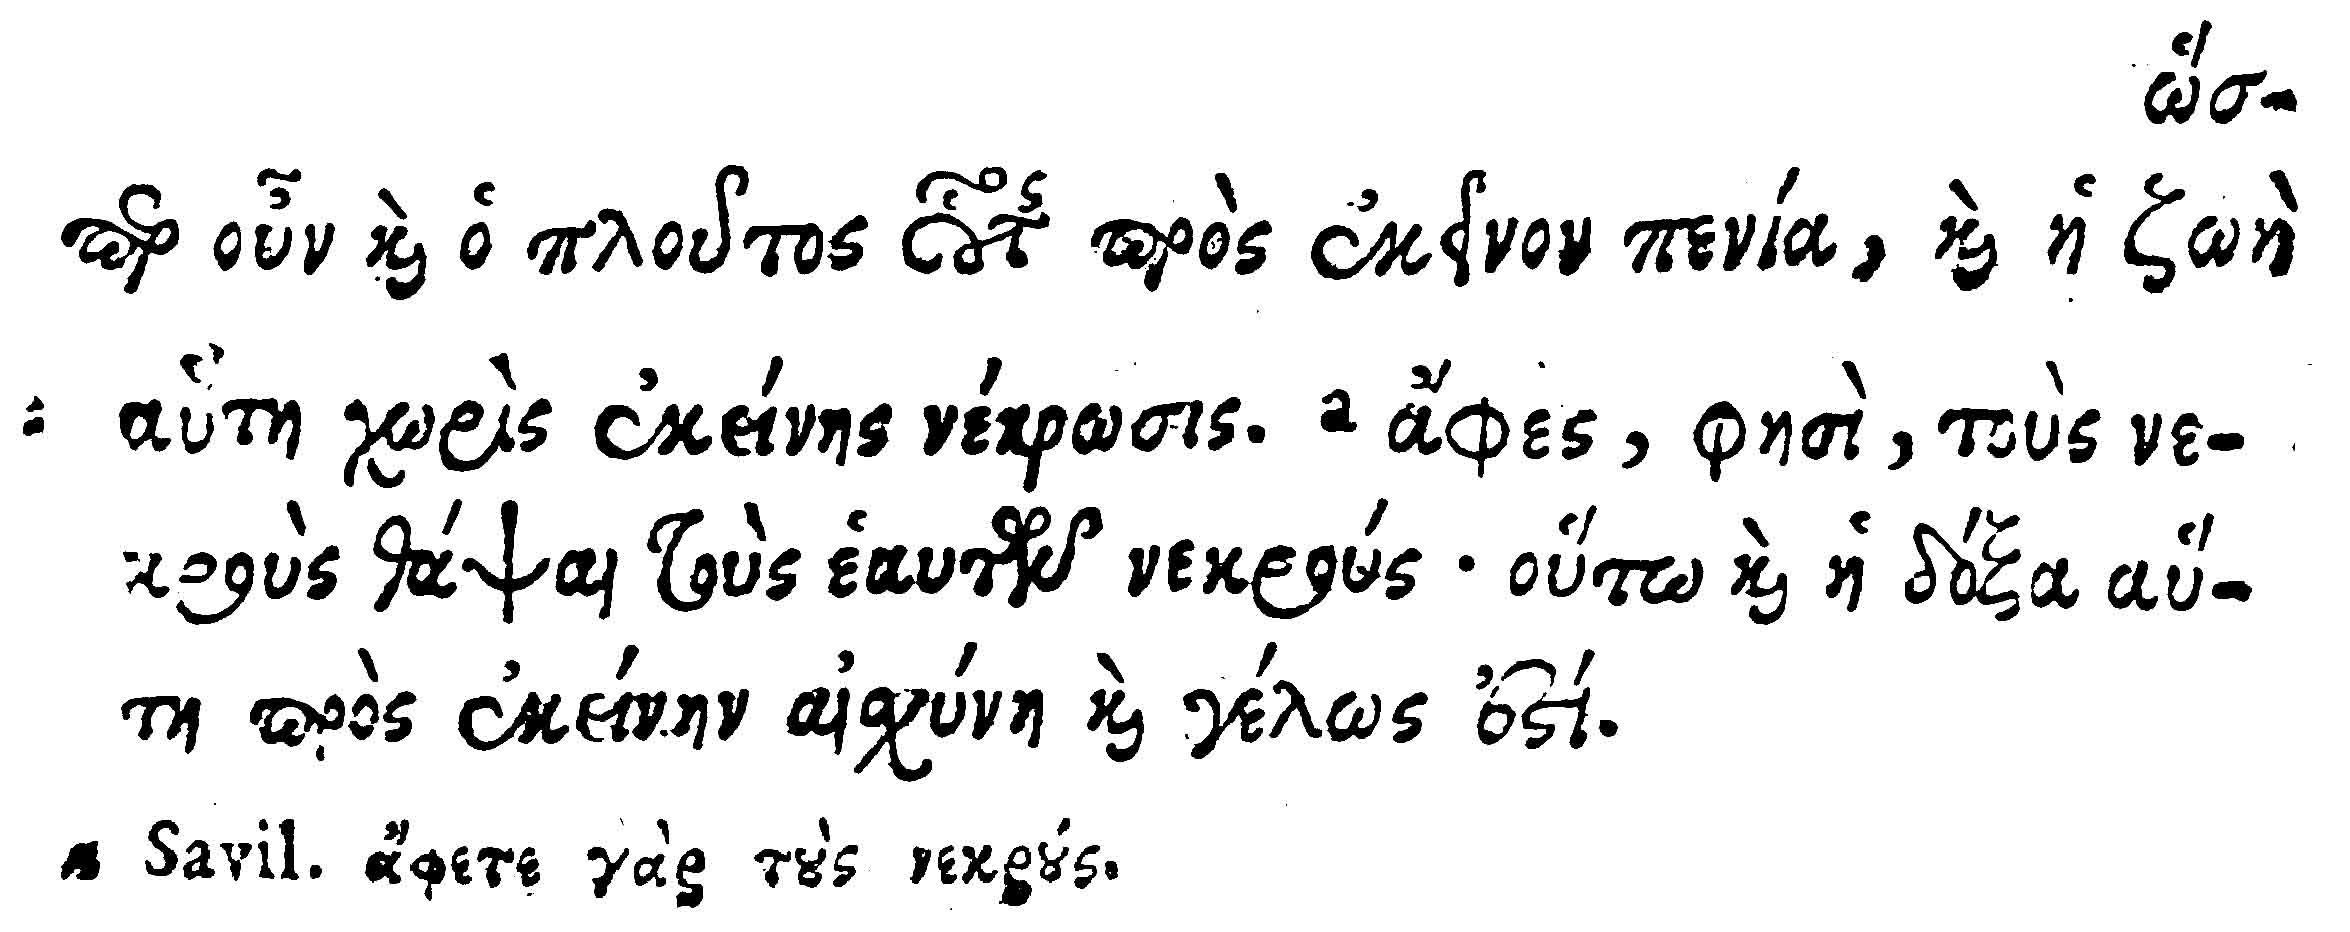 ὥσ-
περ οὖν καὶ ὁ πλοῦτος οὗτος πρὸς ἐκεῖνον πενία, καὶ ἡ ζωὴ
αὕτη χωρὶς ἐκείνης νέκρωσις. a ἄφες, φησὶ, τοὺς νε-
κροὺς θάψαι τοὺς ἑαυτῶν νεκρούς · οὕτω καὶ ἡ δόξα αὕ-
τη πρὸς ἐκείνην αἰσχύνη καὶ γέλως ἐστί.
a Savil. ἄφετε γὰρ τοὺς νεκρούς.